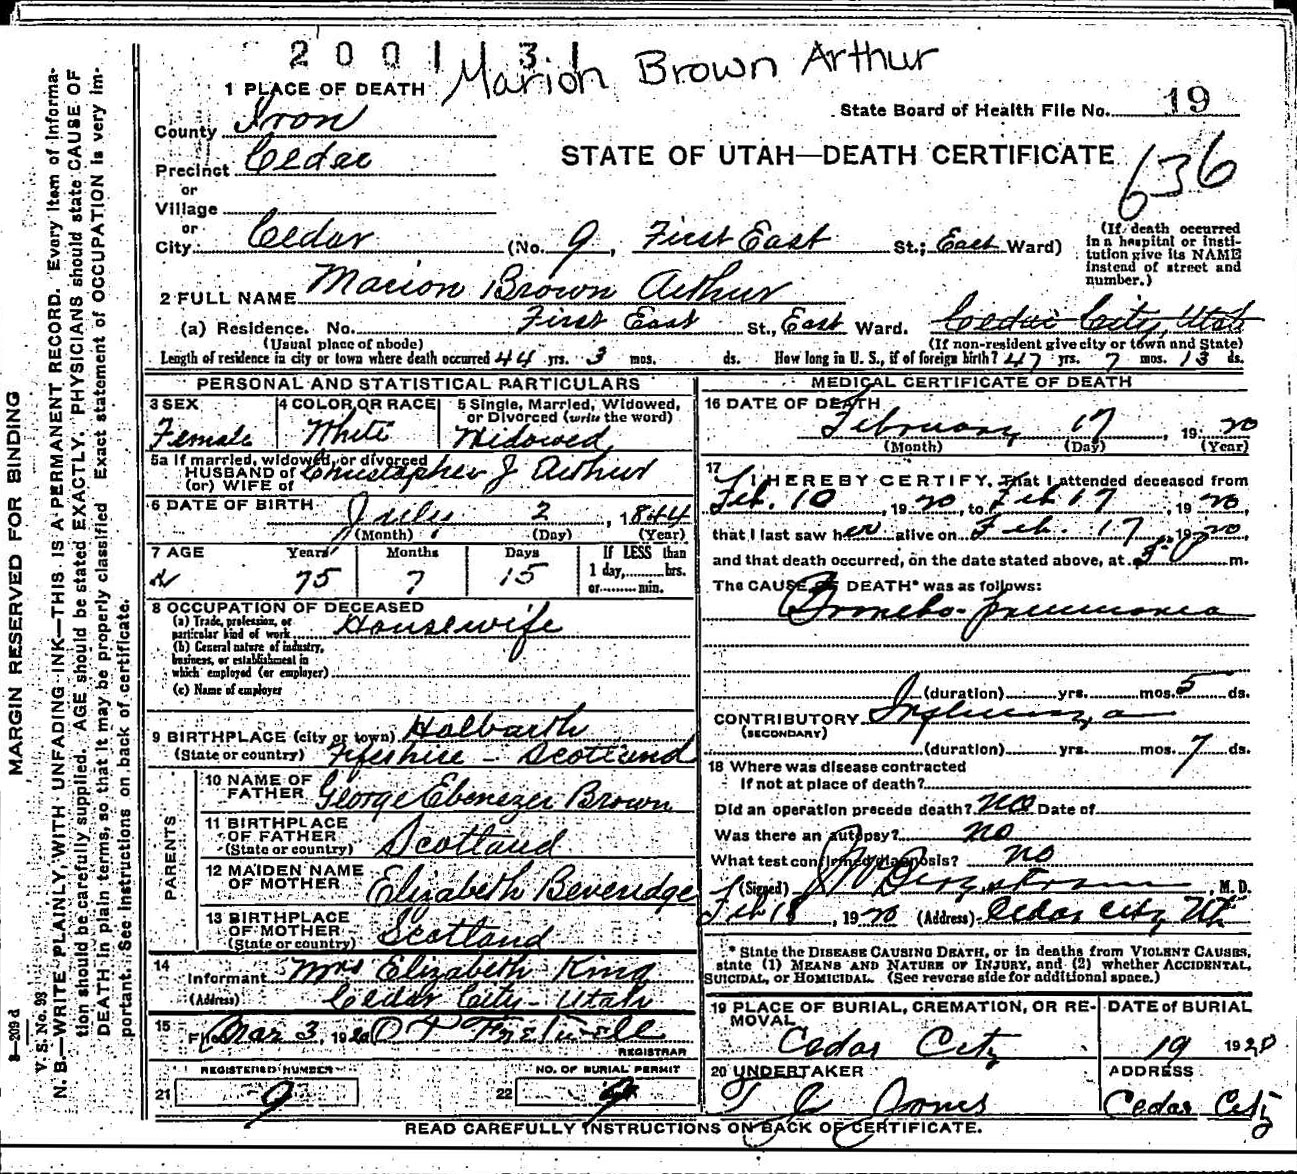 2001 31
Marion Brown Arthur
1 PLACE OF DEATH
State Board of Health File No. 19
County Iron
STATE OF UTAH—DEATH CERTIFICATE
636
Precinct Cedar
or
Village
or
City Cedar (No. 9, First East St.; East Ward)
(If death occurred in a hospital or institution give its NAME instead of street and number.)
2 FULL NAME Marion Brown Arthur
(a) Residence. No. First East St., East Ward. Cedar City, Utah
(Usual place of abode) (If non-resident give city or town and State)
Length of residence in city or town where death occurred 44 yrs. 3 mos. ds. How long in U. S., if of foreign birth? 47 yrs. 7 mos. 13 ds.
PERSONAL AND STATISTICAL PARTICULARS
3 SEX 4 COLOR OR RACE 5 Single, Married, Widowed, or Divorced (write the word)
Female White Widowed
5a If married, widowed, or divorced
HUSBAND of Christopher J Arthur
(or) WIFE of
6 DATE OF BIRTH July 2, 1844
(Month) (Day) (Year)
7 AGE Years Months Days If LESS than
1 day, hrs.
75 7 15 or min.
8 OCCUPATION OF DECEASED
(a) Trade, profession, or particular kind of work Housewife
(b) General nature of industry, business, or establishment in which employed (or employer)
(c) Name of employer
9 BIRTHPLACE (city or town) Halbarth
(State or country) Fifeshire - Scotland
PARENTS
10 NAME OF FATHER George Ebenezer Brown
11 BIRTHPLACE OF FATHER (State or country) Scotland
12 MAIDEN NAME OF MOTHER Elizabeth Beveridge
13 BIRTHPLACE OF MOTHER (State or country) Scotland
14 Informant Mrs Elizabeth King
(Address) Cedar City - Utah
15 Filed Mar 3, 1920
REGISTRAR
REGISTERED NUMBER NO. OF BURIAL PERMIT
21 9 22 9
MEDICAL CERTIFICATE OF DEATH
16 DATE OF DEATH
February 17, 1920
(Month) (Day) (Year)
17 I HEREBY CERTIFY, That I attended deceased from
Feb. 10, 1920, to Feb 17, 1920,
that I last saw her alive on Feb. 17, 1920,
and that death occurred, on the date stated above, at m.
The CAUSE OF DEATH* was as follows:
Broncho-pneumonia
(duration) yrs. mos. 5 ds.
CONTRIBUTORY Influenza
(SECONDARY)
(duration) yrs. mos. 7 ds.
18 Where was disease contracted
If not at place of death?
Did an operation precede death? no Date of
Was there an autopsy? no
What test confirmed diagnosis? no
(Signed) J W Bergstrom, M. D.
Feb 18, 1920 (Address) Cedar City Ut.
* State the DISEASE CAUSING DEATH, or in deaths from VIOLENT CAUSES, state (1) MEANS AND NATURE OF INJURY, and (2) whether ACCIDENTAL, SUICIDAL, or HOMICIDAL. (See reverse side for additional space.)
19 PLACE OF BURIAL, CREMATION, OR REMOVAL DATE OF BURIAL
Cedar City 19 1920
20 UNDERTAKER ADDRESS
T J Jones Cedar City
READ CAREFULLY INSTRUCTIONS ON BACK OF CERTIFICATE.
MARGIN RESERVED FOR BINDING
3—209 d
V. S. No. 93
N. B.—WRITE PLAINLY, WITH UNFADING INK—THIS IS A PERMANENT RECORD. Every item of information should be carefully supplied. AGE should be stated EXACTLY. PHYSICIANS should state CAUSE OF DEATH in plain terms, so that it may be properly classified. Exact statement of OCCUPATION is very important. See instructions on back of certificate.